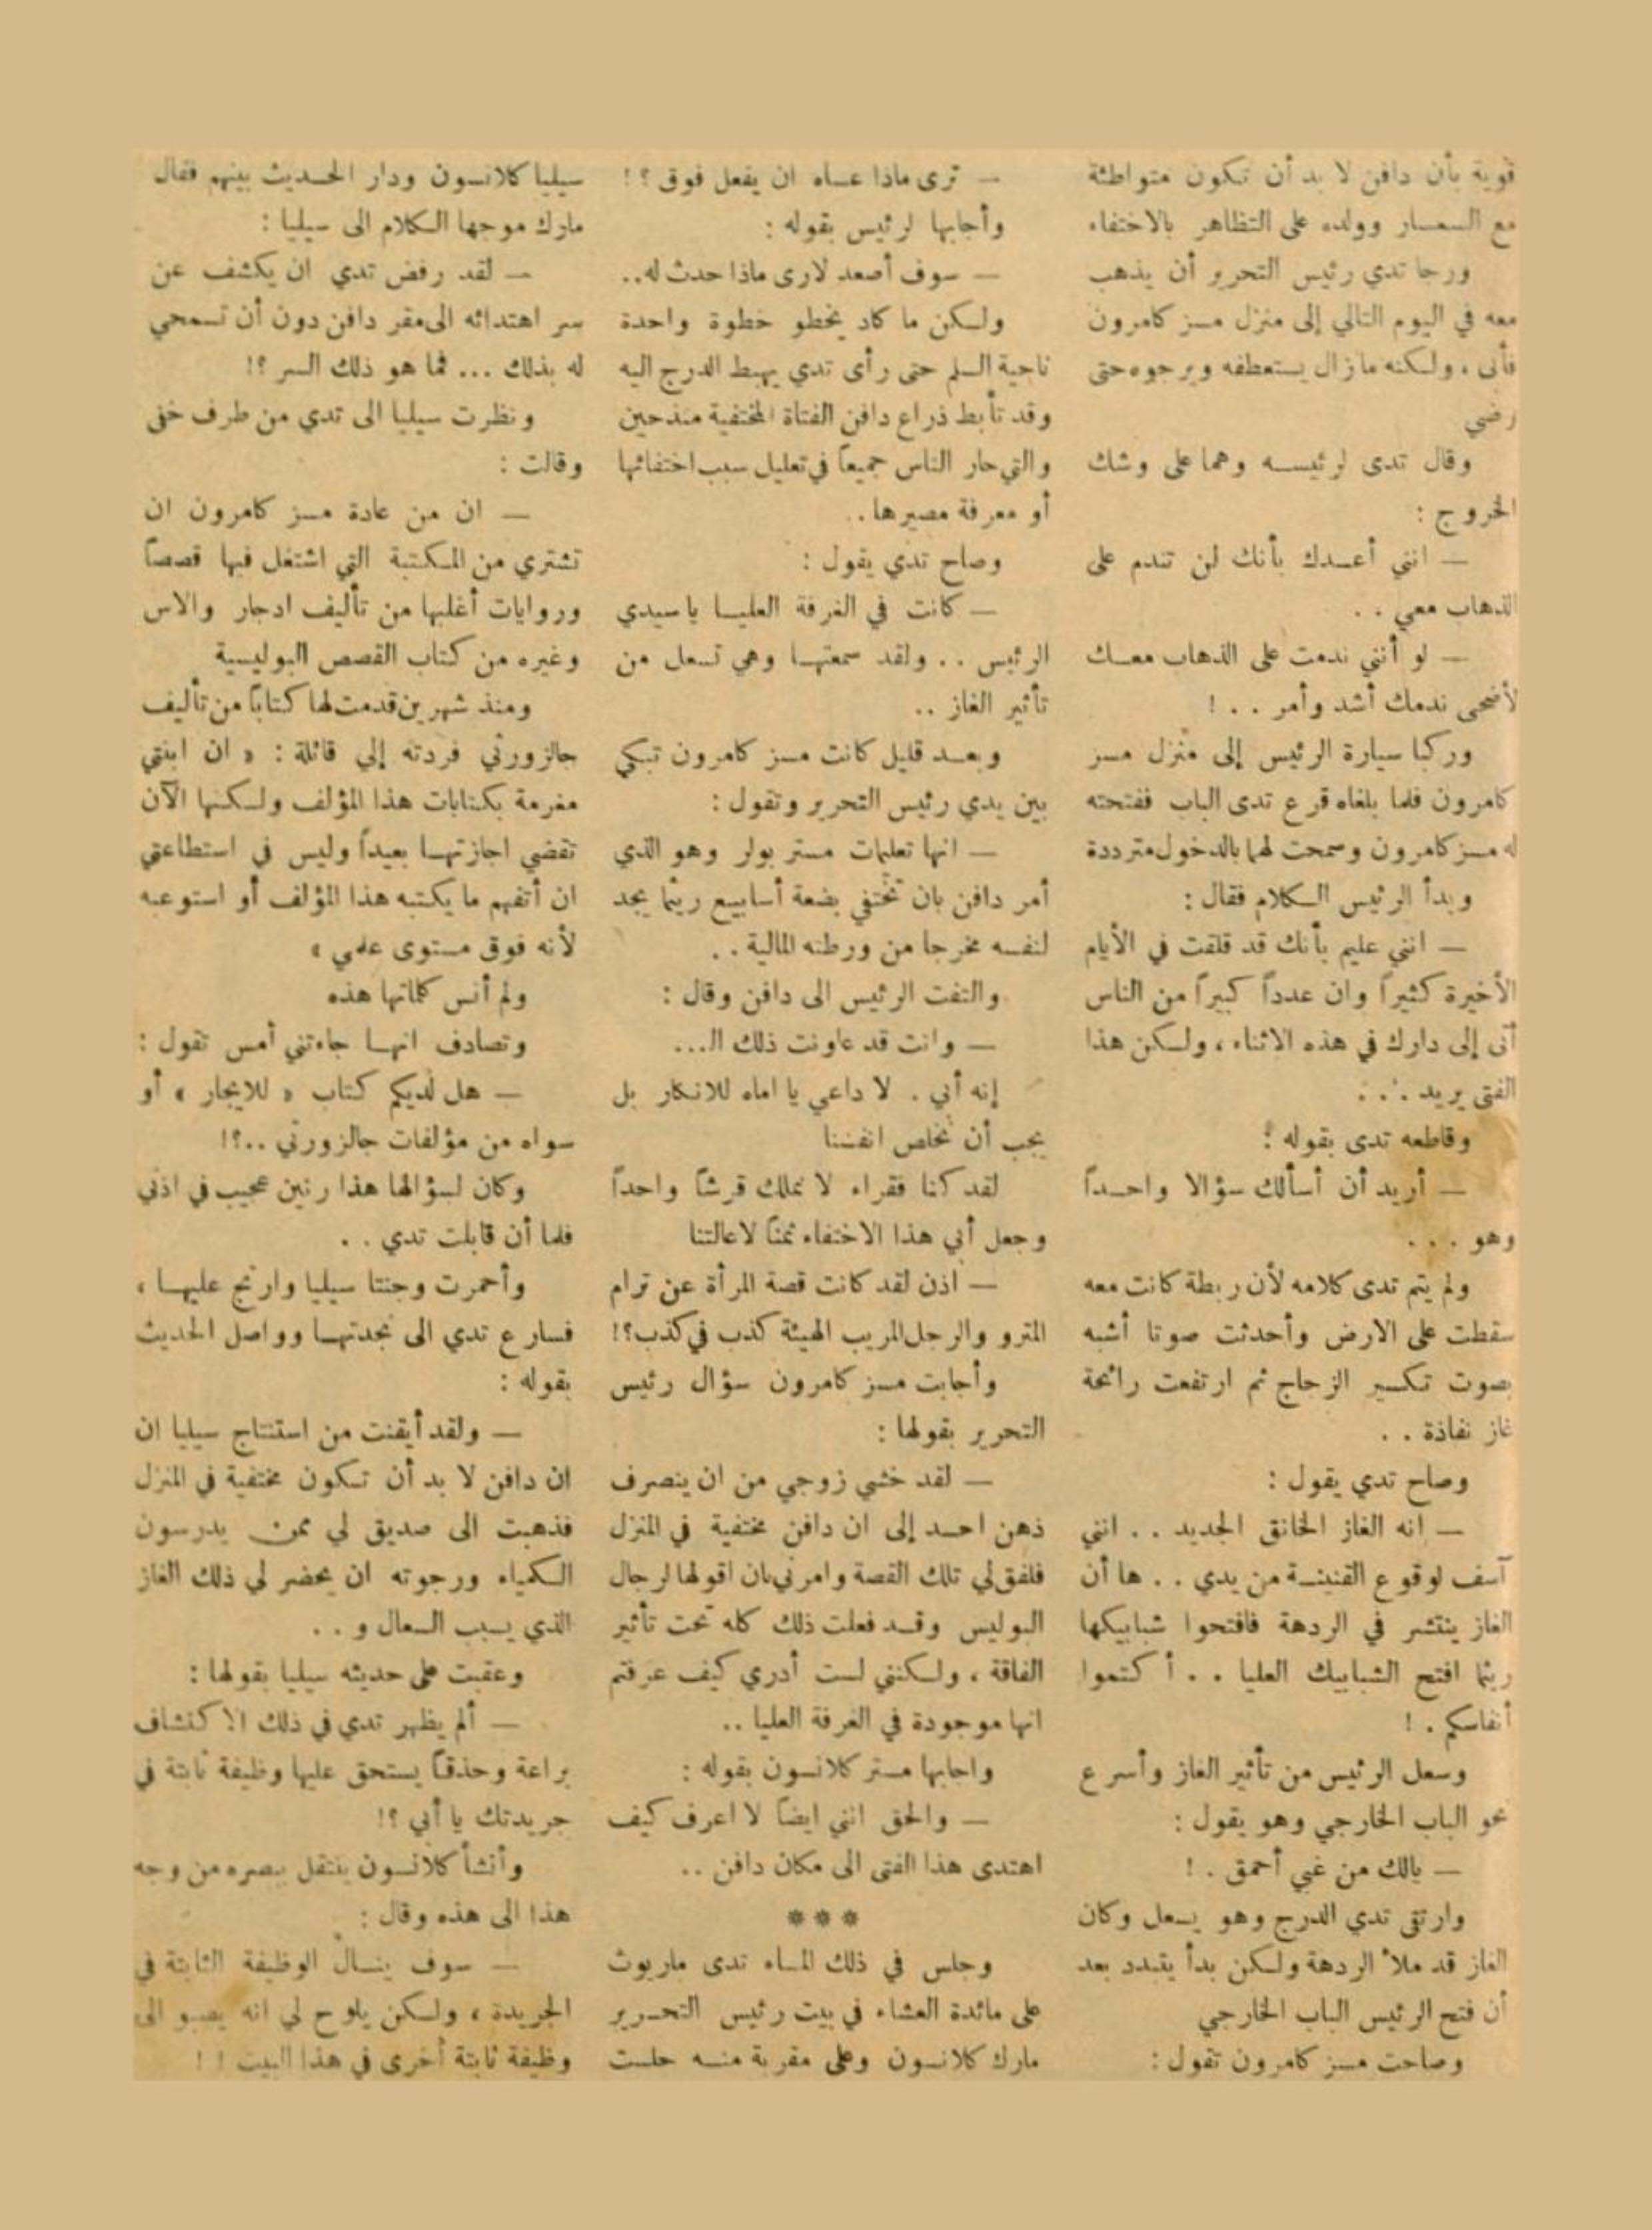 قوية بأن دافن لا بد أن تكون متواطئة
مع السمسار وولده على التظاهر بالاختفاء
ورجا تدي رئيس التحرير أن يذهب
معه في اليوم التالي إلى منزل مسز كامرون
فأبى ، ولكنه مازال يستعطفه ويرجوه حتى
رضي
وقال تدى لرئيسه وهما على وشك
الخروج :
— انني أعدك بأنك لن تندم على
الذهاب معي . .
— لو أنني ندمت على الذهاب معك
لأضحى ندمك أشد وأمر . . !
وركبا سيارة الرئيس إلى منزل مسز
كامرون فلما بلغاه قرع تدى الباب ففتحته
له مسز كامرون وسمحت لهما بالدخول مترددة
وبدأ الرئيس الكلام فقال :
— انني عليم بأنك قد قلقت في الأيام
الأخيرة كثيراً وان عدداً كبيراً من الناس
أتى إلى دارك في هذه الاثناء ، ولكن هذا
الفتى يريد . . .
وقاطعه تدى بقوله :
— أريد أن أسألك سؤالا واحداً
وهو . . .
ولم يتم تدى كلامه لأن ربطة كانت معه
سقطت على الارض وأحدثت صوتا أشبه
بصوت تكسير الزجاج ثم ارتفعت رائحة
غاز نفاذة . .
وصاح تدي يقول :
— انه الغاز الخانق الجديد . . انني
آسف لوقوع القنينة من يدي . . ها أن
الغاز ينتشر في الردهة فافتحوا شبابيكها
ريثما افتح الشبابيك العليا . . أكتموا
أنفاسكم . !
وسعل الرئيس من تأثير الغاز وأسرع
نحو الباب الخارجي وهو يقول :
— يالك من غبي أحمق . !
وارتقى تدي الدرج وهو يسعل وكان
الغاز قد ملأ الردهة ولكن بدأ يتبدد بعد
أن فتح الرئيس الباب الخارجي
وصاحت مسز كامرون تقول :
— ترى ماذا عساه ان يفعل فوق ؟ !
وأجابها لرئيس بقوله :
— سوف أصعد لارى ماذا حدث له..
ولكن ما كاد يخطو خطوة واحدة
ناحية السلم حتى رأى تدي يهبط الدرج اليه
وقد تأبط ذراع دافن الفتاة المختفية منذحين
والتي حار الناس جميعاً في تعليل سبب اختفائها
أو معرفة مصيرها . .
وصاح تدي يقول :
— كانت في الغرفة العليا ياسيدي
الرئيس . . ولقد سمعتها وهي تسعل من
تأثير الغاز ..
وبعد قليل كانت مسز كامرون تبكي
بين يدي رئيس التحرير وتقول :
— انها تعليمات مستر بولر وهو الذي
أمر دافن بان تختفي بضعة أسابيع ريثما يجد
لنفسه مخرجا من ورطته المالية . .
والتفت الرئيس الى دافن وقال :
— وانت قد عاونت ذلك الـ...
إنه أبي . لا داعي يا اماه للانكار بل
يجب أن نخلص انفسنا
لقد كنا فقراء لا نملك قرشاً واحداً
وجعل أبي هذا الاختفاء ثمناً لاعالتنا
— اذن لقد كانت قصة المرأة عن ترام
المترو والرجل المريب الهيئة كذب في كذب؟!
وأجابت مسز كامرون سؤال رئيس
التحرير بقولها :
— لقد خشي زوجي من ان ينصرف
ذهن احد إلى ان دافن مختفية في المنزل
فلفق لي تلك القصة وامرني بان اقولها لرجال
البوليس وقد فعلت ذلك كله تحت تأثير
الفاقة ، ولكنني لست أدري كيف عرفتم
انها موجودة في الغرفة العليا ..
واجابها مستر كلانسون بقوله :
— والحق انني ايضاً لا اعرف كيف
اهتدى هذا الفتى الى مكان دافن ..
***
وجلس في ذلك المساء تدى ماريوث
على مائدة العشاء في بيت رئيس التحرير
مارك كلانسون وعلى مقربة منه جلست
سيليا كلانسون ودار الحديث بينهم فقال
مارك موجها الكلام الى سيليا :
— لقد رفض تدي ان يكشف عن
سر اهتدائه الى مقر دافن دون أن تسمحي
له بذلك ... فما هو ذلك السر ؟!
ونظرت سيليا الى تدي من طرف خفى
وقالت :
— ان من عادة مسز كامرون ان
تشتري من المكتبة التي اشتغل فيها قصصاً
وروايات أغلبها من تأليف ادجار والاس
وغيره من كتاب القصص البوليسية
ومنذ شهرين قدمت لها كتاباً من تأليف
جالزورثي فردته إلي قائلة : « ان ابنتي
مغرمة بكتابات هذا المؤلف ولكنها الآن
تقضي اجازتها بعيداً وليس في استطاعتي
ان أتفهم ما يكتبه هذا المؤلف أو استوعبه
لأنه فوق مستوى علمي »
ولم أنس كلماتها هذه
وتصادف انها جاءتني أمس تقول :
— هل لديكم كتاب « للايجار » أو
سواه من مؤلفات جالزورثي ..؟!
وكان لسؤالها هذا رنين عجيب في اذني
فلما أن قابلت تدي . .
وأحمرت وجنتا سيليا وارتج عليها ،
فسارع تدي الى نجدتها وواصل الحديث
بقوله :
— ولقد أيقنت من استنتاج سيليا ان
ان دافن لا بد أن تكون مختفية في المنزل
فذهبت الى صديق لي ممن يدرسون
الكمياء ورجوته ان يحضر لي ذلك الغاز
الذي يسبب السعال و . .
وعقبت على حديثه سيليا بقولها :
— ألم يظهر تدي في ذلك الاكتشاف
براعة وحذقاً يستحق عليها وظيفة ثابتة في
جريدتك يا أبي ؟!
وأنشأ كلانسون ينتقل ببصره من وجه
هذا الى هذه وقال :
— سوف ينال الوظيفة الثابتة في
الجريدة ، ولكن يلوح لي انه يصبو الى
وظيفة ثابتة أخرى في هذا البيت ! !